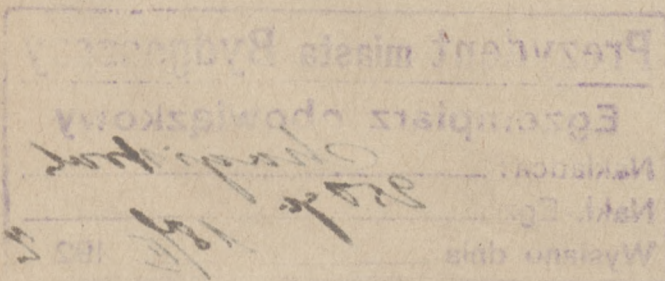 Prezydent miasta Bydgoszczy
Egzemplarz obowiązkowy
Nakładca: Magistrat
Nakł. Egz. 250
Wysłano dnia 18/ 192